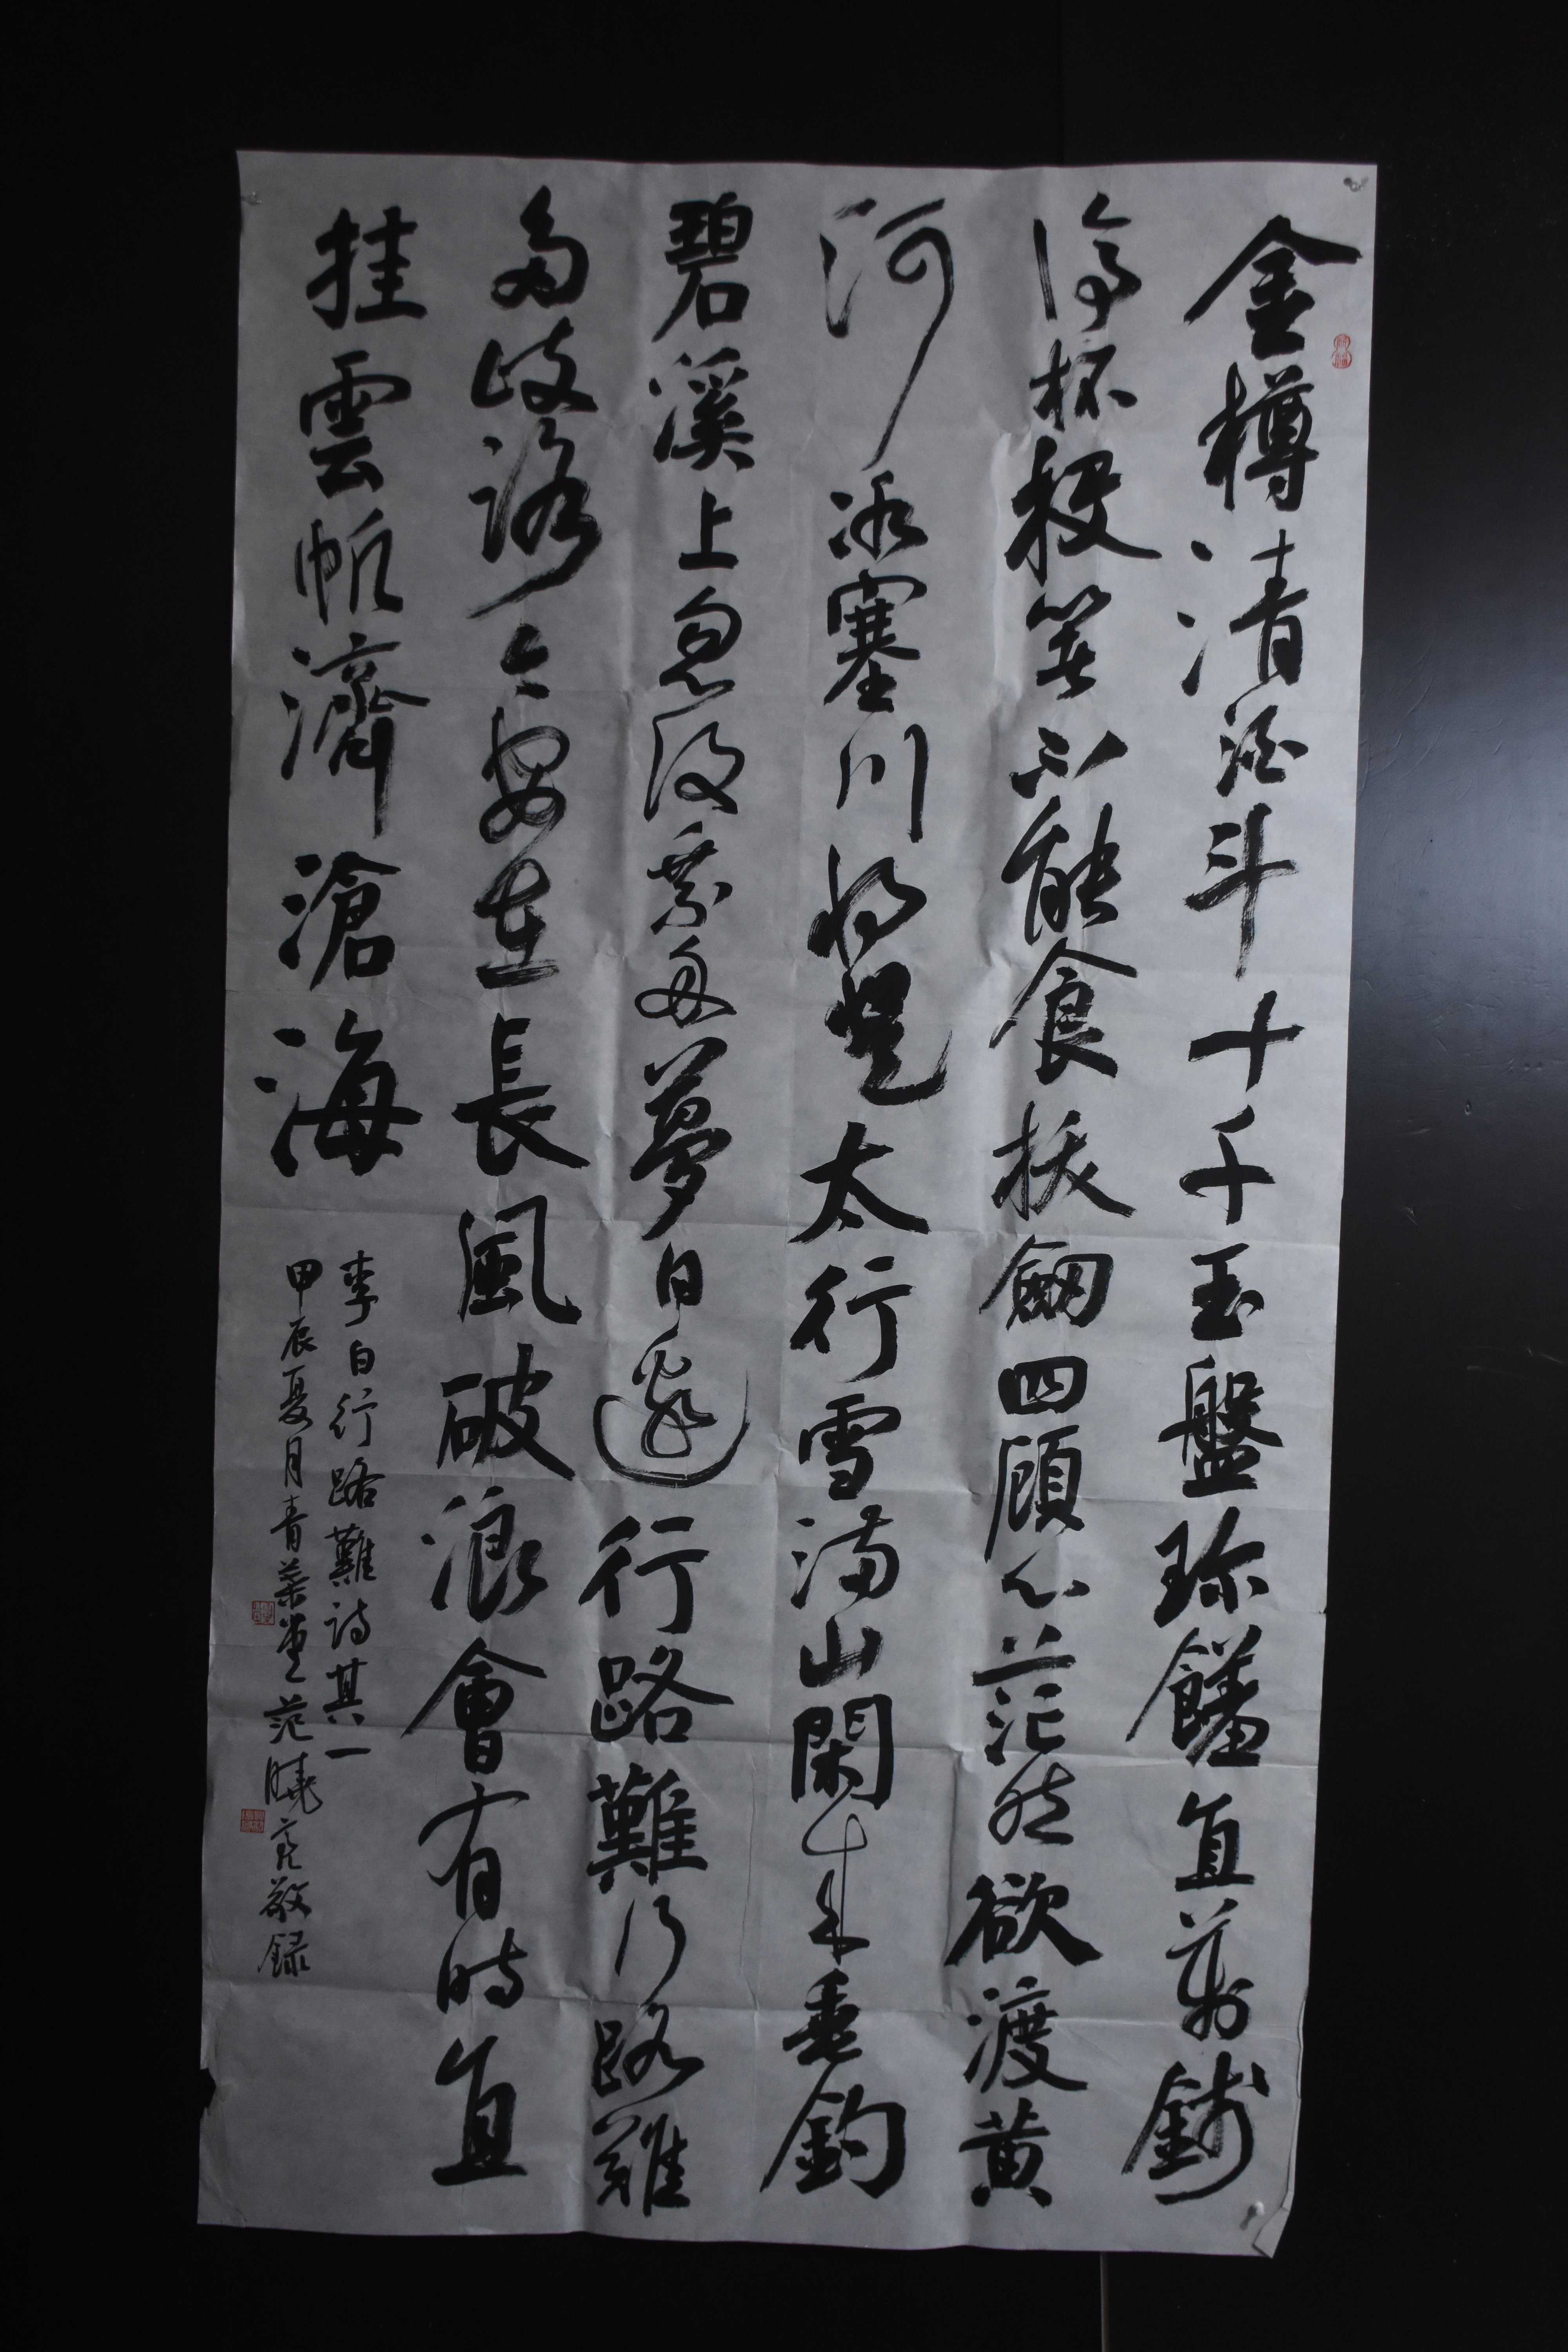 金樽清酒斗十千玉盤珎饈直萬錢
停杯投箸不能食拔劒四顧心茫然欲渡黄
河冰塞川将登太行雪满山閑来垂釣
碧溪上忽復乘舟夢日邊行路難行路難
多歧路今安在長風破浪會有時直
挂雲帆濟滄海
李白行路難詩其一
甲辰夏月青葉堂范曉亮敬録